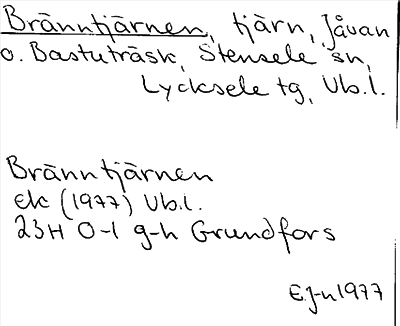 Bränntjärnen, tjärn, Jåvan
o. Bastuträsk, Stensele sn,
Lycksele tg, Vb.l.
Bränntjärnen
ek (1977) Vb.l.
23H 0-1 g-h Grundfors
EJ-n 1977